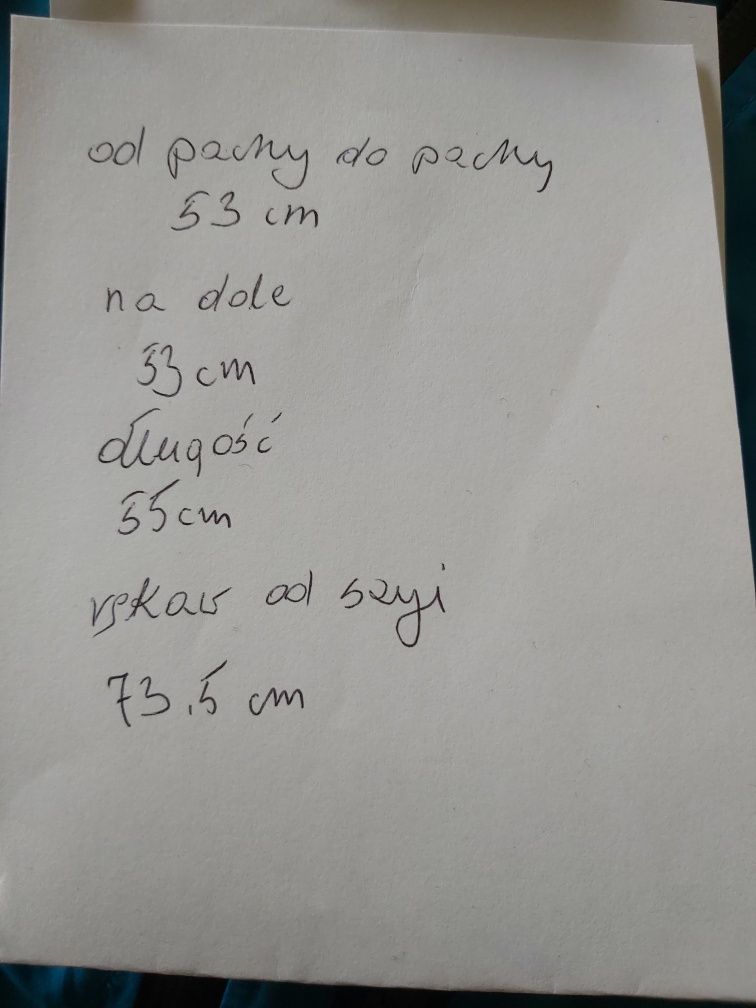 od pachy do pachy
53 cm
na dole
53 cm
długość
55 cm
rękaw od szyi
73.5 cm